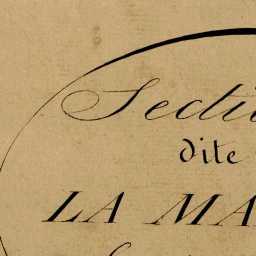 Secti
dite
LA MA